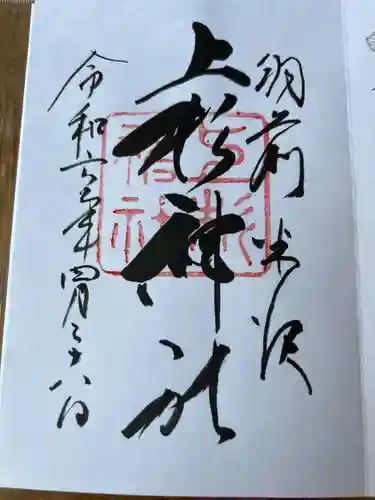 羽前米沢
上杉神社
上杉神社
令和六年四月二十八日